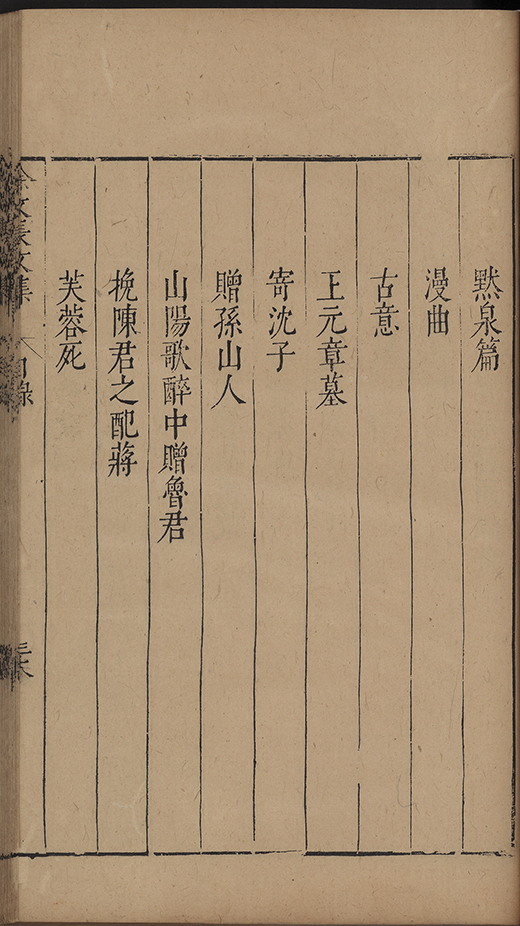 默泉篇
漫曲
古意
王元章墓
寄沈子
贈孫山人
山陽歌醉中贈魯君
挽陳君之配蔣
芙蓉死
徐文長文集
目錄